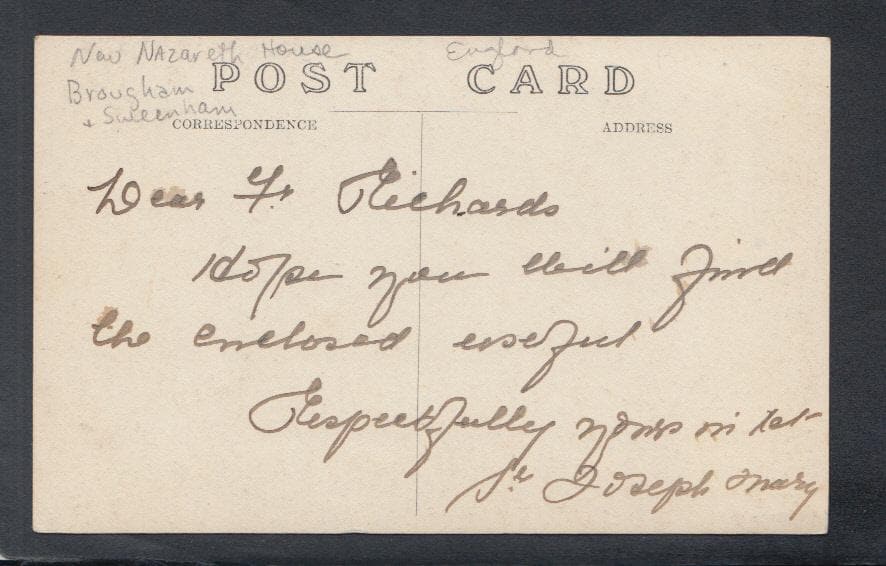 New Nazareth House England
Brougham
POST CARD
+ Sweenham
CORRESPONDENCE ADDRESS
Dear Fr. Richards
Hope you will find
the enclosed useful
Respectfully yours in
Sr. Joseph Mary